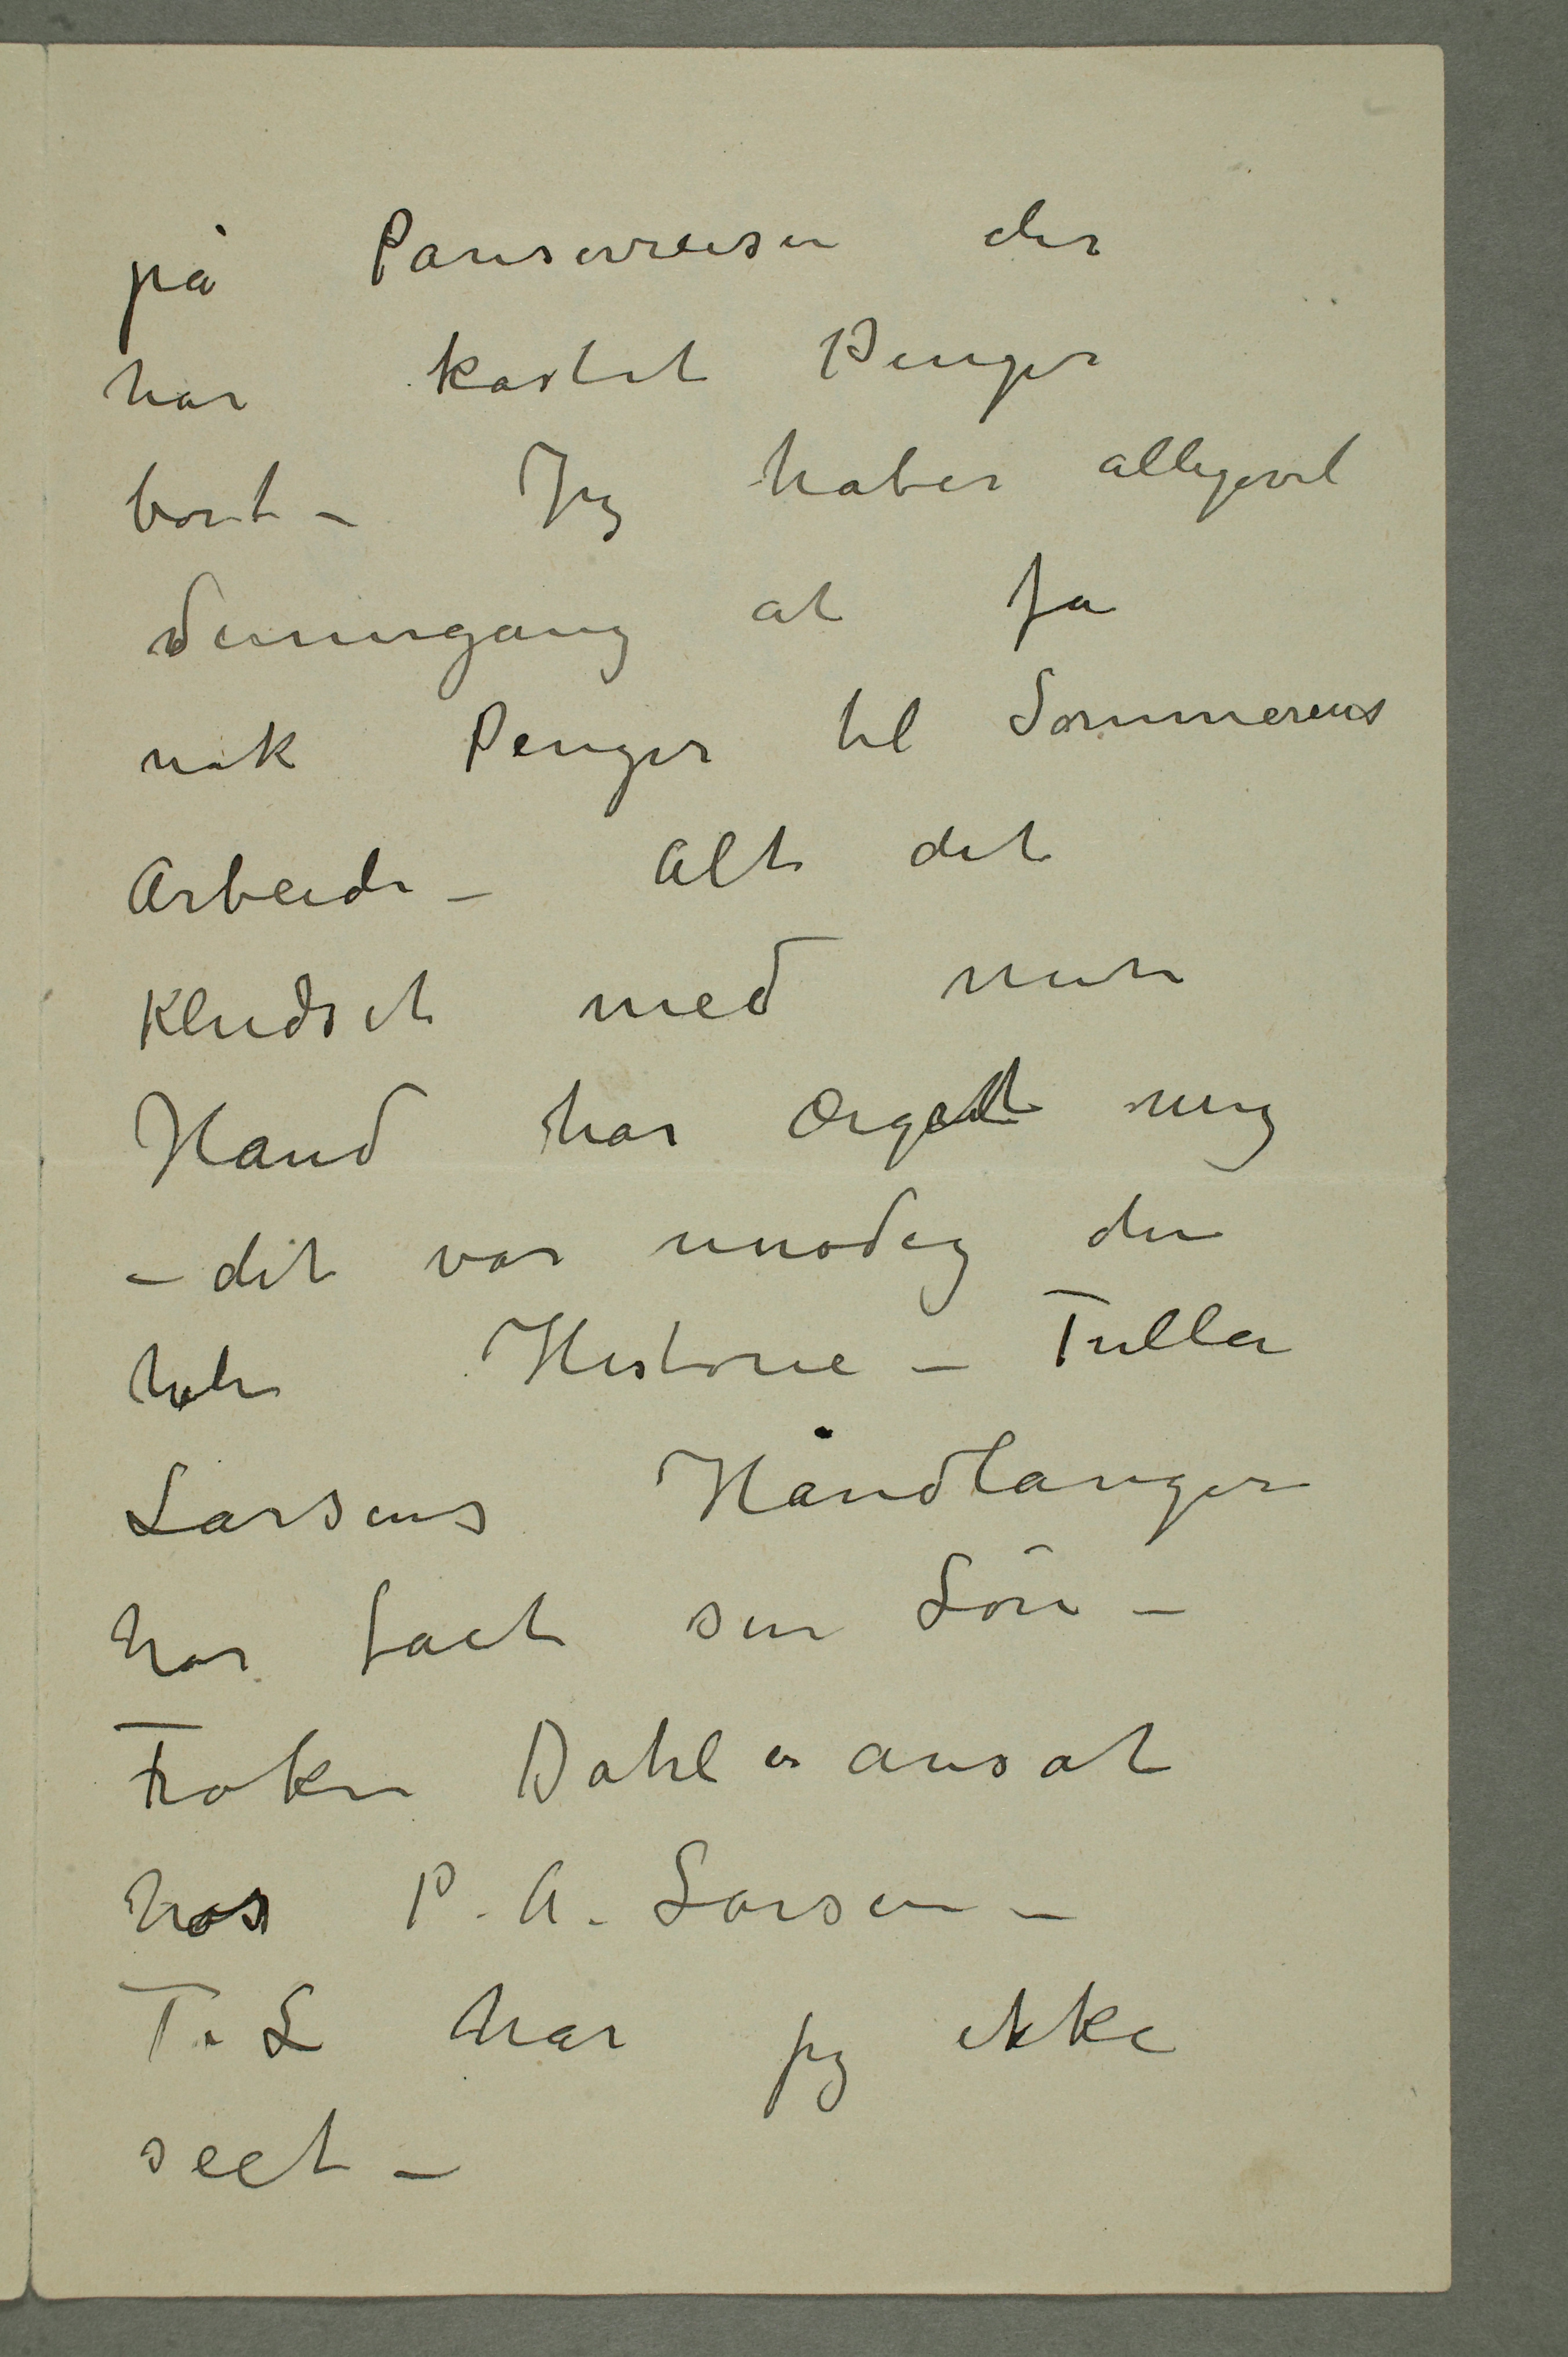 på Pariserreisen der
har kastet Penger
bort – Jeg haber alligevel
dennegang at fa
nok Penger til Sommerens
Arbeide – Alt det
Kludset med min
Hand har ærget mig
– det var unødig den
hele Historie – Tulla
Larsens Håndlanger
har faet sin Lön –
Frøken Dahl er ansat
hos P. A. Larsen –
T. L har jeg ikke
seet –